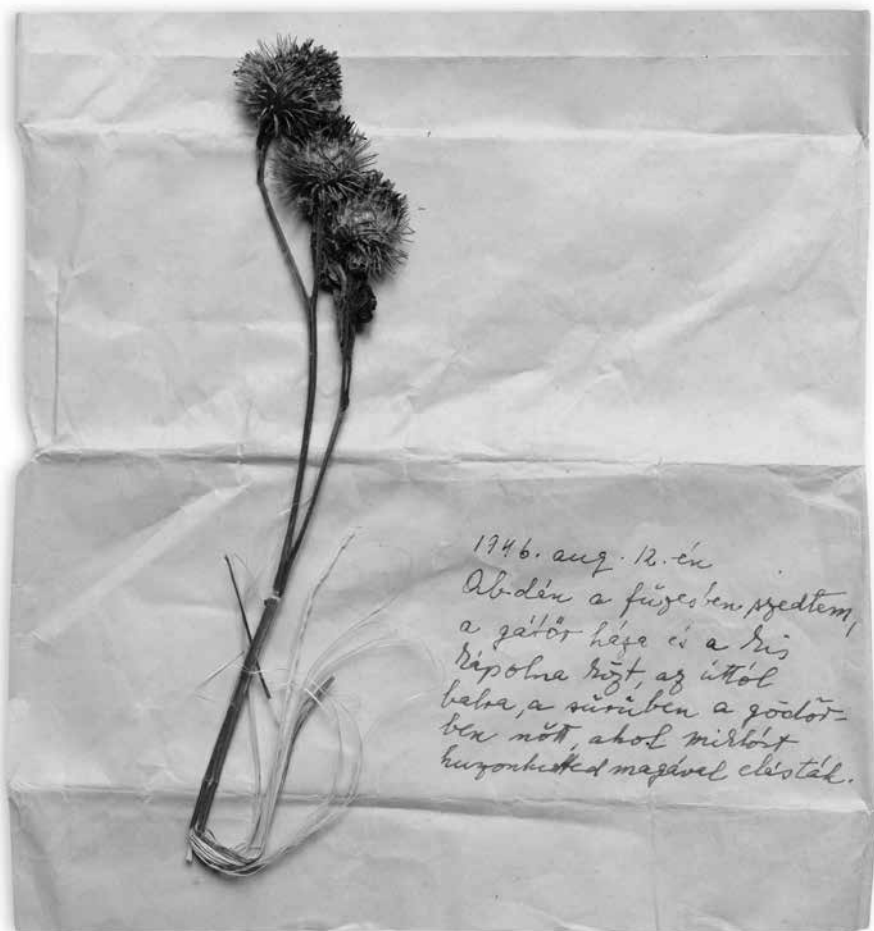 1946. aug. 12.-én
Abdán a füzesben szedtem,
a gátőr háza és a kis
kápolna közt, az úttól
balra, a sűrűben a gödör-
ben nőtt, ahol Miklóst
huszonketted magával elásták.